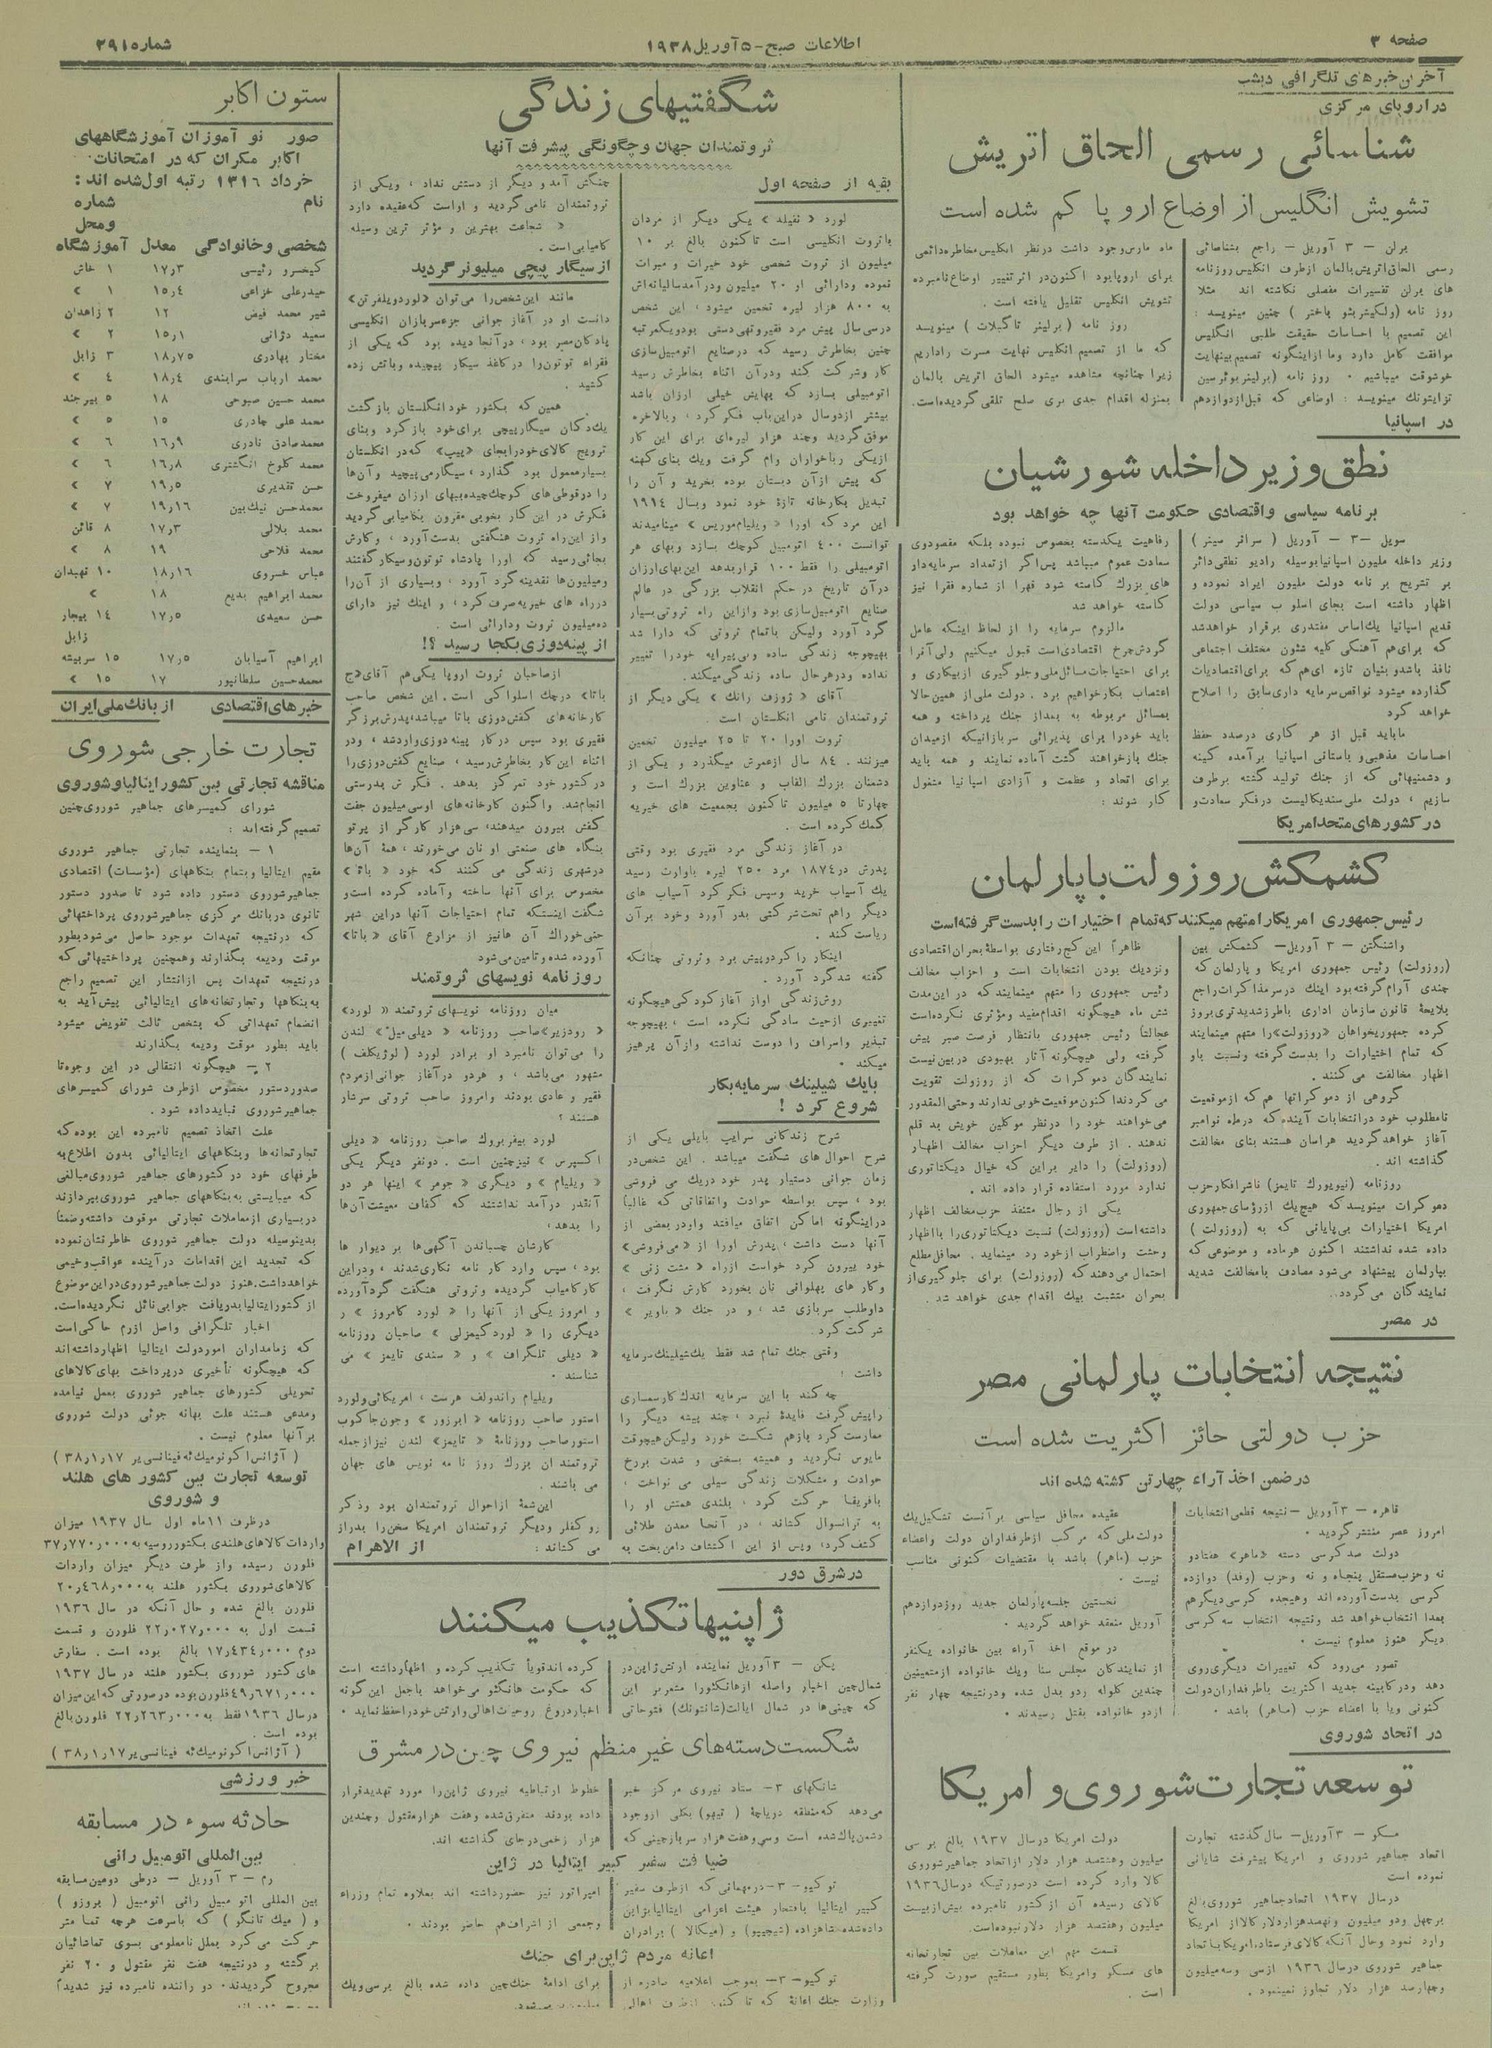 صفحه ۳
اطلاعات صبح - ۵ آوریل ۱۹۳۸
شماره ۳۹۱۵
آخرین خبرهای تلگرافی دیشب
در اروپای مرکزی
شناسائی رسمی الحاق اتریش
تشویش انگلیس از اوضاع اروپا کم شده است
برلن - ۳ آوریل - راجع بشناسائی
رسمی الحاق اتریش بالمان ازطرف انگلیس روزنامه
های برلن تفسیرات مفصلی نگاشته اند . مثلا
این تصمیم با احساسات حقیقت طلبی انگلیس
موافقت کامل دارد وما ازاینگونه تصمیم بینهایت
ماه مارس وجود داشت درنظر انگلیس مخاطره دائمی
برای اروپا بود اکنون در اثر تغییر اوضاع نامبرده
تشویش انگلیس تقلیل یافته است .
روز نامه ( برلینر تاگبلات ) مینویسد
که ما از تصمیم انگلیس نهایت مسرت راداریم
زیرا چنانچه مشاهده میشود الحاق اتریش بالمان
بمنزله اقدام جدی بری صلح تلقی گردیده است.
در اسپانیا
نطق وزیر داخله شورشیان
برنامه سیاسی واقتصادی حکومت آنها چه خواهد بود
وزیر داخله ملیون اسپانیا بوسیله رادیو نطقی دائر
بر تشریح بر نامه دولت ملیون ایراد نموده و
اظهار داشته است بجای اسلوب سیاسی دولت
قدیم اسپانیا یك اساس مقتدری برقرار خواهد شد
که برای هم آهنگی کلیه شئون مختلف اجتماعی
خواهد کرد
ماباید قبل از هر کاری درصدد حفظ
احساسات مذهبی و باستانی اسپانیا برآمده کینه
و دشمنیهائی که از جنك تولید گشته برطرف
سازیم ، دولت ملی سندیکالیست درفکر سعادت و
رفاهیت یکدسته بخصوص نبوده بلکه مقصودوی
سعادت عموم میباشد پس اگر از تعداد سرمایه دار
های بزرك کاسته شود قهرا از شماره فقرا نیز
کاسته خواهد شد
مالزوم سرمایه را از لحاظ اینکه عامل
گردش چرخ اقتصادی است قبول میکنیم ولی آنرا
برای احتیاجات مسائل ملی و جلوگیری از بیکاری و
اعتصاب بکار خواهیم برد . دولت ملی از همین حالا
بمسائل مربوطه به بعداز جنك پرداخته و همه
باید خود را برای پذیرائی سربازانیکه ازمیدان
جنك بازخواهند گشت آماده نمایند و همه باید
برای اتحاد و عظمت و آزادی اسپانیا مشغول
کار شوند :
در کشورهای متحد امریکا
کشمکش روزولت با پارلمان
رئیس جمهوری امریکا را متهم میکنند که تمام اختیارات را بدست گرفته است
واشنگتن - ۳ آوریل - کشمکش بین
(روزولت) رئیس جمهوری امریکا و پارلمان که
چندی آرام گرفته بود اینك درسر مذاکرات راجع
بلایحهٔ قانون سازمان اداری باطرز شدیدتری بروز
کرده جمهوریخواهان «روزولت» را متهم مینمایند
که تمام اختیارات را بدست گرفته ونسبت باو
اظهار مخالفت می کنند .
گروهی از دموکراتها هم که ازموقعیت
نامطلوب خود درانتخابات آینده که درماه نوامبر
آغاز خواهد گردید هراسان هستند بنای مخالفت
گذاشته اند .
روزنامه (نیویورك تایمز) ناشرافکار حزب
دموکرات مینویسد که هیچ یك از رؤسای جمهوری
امریکا اختیارات بی پایانی که به (روزولت)
داده شده نداشتند اکنون هرماده و موضوعی که
بپارلمان پیشنهاد می شود مصادف با مخالفت شدید
نمایندگان می گردد.
ظاهراً این کج رفتاری بواسطهٔ بحران اقتصادی
ونزدیك بودن انتخابات است و احزاب مخالف
رئیس جمهوری را متهم مینمایند که در این مدت
شش ماه هیچگونه اقدام مفید و مؤثری نکرده است
عجالتاً رئیس جمهوری بانتظار فرصت صبر پیش
گرفته ولی هیچگونه آثار بهبودی دربین نیست
نمایندگان دموکرات که از روزولت تقویت
می کردند اکنون موقعیت خوبی ندارند وحتی المقدور
می خواهند خود را درنظر موکلین خویش بد قلم
ندهند . از طرف دیگر احزاب مخالف اظهار
(روزولت) را دایر براین که خیال دیکتاتوری
ندارد مورد استفاده قرار داده اند .
یکی از رجال متنفذ حزب مخالف اظهار
داشته است (روزولت) نسبت دیکتاتوری را با اظهار
وحشت واضطراب ازخود رد مینماید . محافل مطلع
احتمال می دهند که (روزولت) برای جلوگیری از
بحران متشبث بیك اقدام جدی خواهد شد .
در مصر
نتیجه انتخابات پارلمانی مصر
حزب دولتی حائز اکثریت شده است
درضمن اخذ آراء چهار تن کشته شده اند
قاهره - ۳ آوریل - نتیجه قطعی انتخابات
امروز عصر منتشر گردید .
دولت صد کرسی دسته «ماهر» هفتادو
نه وحزب مستقل پنجاه و نه وحزب (وفد) دوازده
کرسی بدست آورده اند وهیجده کرسی دیگر هم
بعدا انتخاب خواهد شد ونتیجه انتخاب سه کرسی
دیگر هنوز معلوم نیست .
تصور می رود که تغییرات دیگری روی
دهد ودر کابینه جدید اکثریت باطرفداران دولت
کنونی ویا با اعضاء حزب (ماهر) باشد .
عقیده محافل سیاسی بر آنست تشکیل یك
دولت ملی که مرکب از طرفداران دولت واعضاء
حزب (ماهر) باشد با مقتضیات کنونی مناسب
نیست .
نخستین جلسه پارلمان جدید روز دوازدهم
آوریل منعقد خواهد گردید .
در موقع اخذ آراء بین خانواده یکنفر
از نمایندگان مجلس سنا ویك خانواده ازمتعینین
چندین گلوله ردو بدل شده ودرنتیجه چهار نفر
ازدو خانواده بقتل رسیدند .
در اتحاد شوروی
توسعه تجارت شوروی و امریکا
مسکو - ۳ آوریل - سال گذشته تجارت
اتحاد جماهیر شوروی و امریکا پیشرفت شایانی
نموده است
درسال ۱۹۳۷ اتحاد جماهیر شوروی بالغ
برچهل ودو میلیون ونهصد هزار دلار کالا از امریکا
وارد نمود وحال آنکه کالای فرستاده امریکا باتحاد
جماهیر شوروی درسال ۱۹۳۶ ازسی وسه میلیون
وچهارصد هزار دلار تجاوز نمینمود .
دولت امریکا درسال ۱۹۳۷ بالغ بر سی
میلیون وهشتصد هزار دلار ازاتحاد جماهیر شوروی
کالا وارد کرده است درصورتیکه درسال ۱۹۳۶
کالای رسیده آن از کشور نامبرده بیش از بیست
میلیون وهفتصد هزار دلار نبوده است.
قسمت مهم این معاملات بین تجارتخانه
های مسکو وامریکا بطور مستقیم صورت گرفته
است .
شگفتیهای زندگی
ثروتمندان جهان و چگونگی پیشرفت آنها
بقیه از صفحه اول
لورد « نفیلد » یکی دیگر از مردان
باثروت انگلیسی است تاکنون بالغ بر ۱۰
میلیون از ثروت شخصی خود خیرات و مبرات
نموده ودارائی او ۲۰ میلیون ودرآمد سالیانه اش
به ۸۰۰ هزار لیره تخمین میشود ، این شخص
درسی سال پیش مرد فقیر وتهی دستی بود ویکمرتبه
چنین بخاطرش رسید که درصنایع اتومبیل سازی
کار وشرکت کند ودرآن اثناء بخاطرش رسید
اتومبیلی بسازد که بهایش خیلی ارزان باشد
بیشتر ازدوسال دراین باب فکر کرد ، وبالاخره
موفق گردید وچند هزار لیره ای برای این کار
ازیکی رباخواران وام گرفت ویك بنای کهنه
که پیش ازآن دبستان بوده بخرید و آن را
تبدیل بکارخانه تازهٔ خود نمود وبسال ۱۹۱۴
این مرد که اورا « ویلیام موریس » مینامیدند
توانست ۴۰۰ اتومبیل کوچك بسازد وبهای هر
اتومبیلی را فقط ۱۰۰ قرار بدهد این بهای ارزان
درآن تاریخ در حکم انقلاب بزرگی در عالم
صنایع اتومبیل سازی بود وازاین راه ثروتی بسیار
گرد آورد ولیکن باتمام ثروتی که دارا شد
بهیچوجه زندگی ساده وبی پیرایه خودرا تغییر
نداده ودرهرحال ساده زندگی میکند.
آقای « ژوزف رانك » یکی دیگر از
ثروتمندان نامی انگلستان است
ثروت اورا ۲۰ تا ۲۵ میلیون تخمین
میزنند . ۸۴ سال ازعمرش میگذرد و یکی از
دشمنان بزرك القاب و عناوین بزرك است و
چهار تا ۵ میلیون تاکنون بجمعیت های خیریه
کمك کرده است .
در آغاز زندگی مرد فقیری بود وقتی
پدرش در ۱۸۷۴ مرد ۲۵۰ لیره باوارث رسید
یك آسیاب خرید وسپس فکر کرد آسیاب های
دیگر راهم تحت شرکتی بدر آورد وخود برآن
ریاست کند .
اینکار را کرد وپیش برد و ثروتی چنانکه
گفته شد گرد آورد .
روش زندگی اواز آغاز کودکی هیچگونه
تغییری ازحیث سادگی نکرده است ، بهیچوجه
تبذیر واسراف را دوست نداشته وازآن پرهیز
میکند .
بایك شیلینك سرمایه بکار
شروع کرد !
شرح زندگانی سرایب بایلی یکی از
شرح احوال های شگفت میباشد . این شخص در
زمان جوانی دستیار پدر خود دریك می فروشی
بود ، سپس بواسطه حوادث واتفاقاتی که غالباً
دراینگونه اماکن اتفاق میافتد واودر بعضی از
آنها دست داشت ، پدرش اورا از « می فروشی »
خود بیرون کرد خواست ازراه « مشت زنی »
وکار های پهلوانی نان بخورد کارش نگرفت ،
داوطلب سربازی شد ، و در جنك « باویر »
شرکت کرد .
وقتی جنك تمام شد فقط یك شیلینك سرمایه
داشت !
چه کند با این سرمایه اندك کارسمساری
را پیش گرفت فایدهٔ نبرد ، چند پیشه دیگر را
ممارست کرد بازهم شکست خورد ولیکن هیچوقت
مایوس نگردید و همیشه بسختی و شدت بررخ
حوادث و مشکلات زندگی سیلی می نواخت ،
بافریقا حرکت کرد ، بلندی همتش او را
به ترانسوال کشاند ، در آنجا معدن طلائی
کشف کرد ، وپس از این اکتشاف دامن بخت به
چنگش آمد و دیگر از دستش نداد ، ویکی از
ثروتمندان نامی گردید و اواست که عقیده دارد
« شجاعت بهترین و مؤثر ترین وسیله
کامیابی است .
از سیگار پیچی میلیونر گردید
مانند این شخص را می توان «لورد ویلفرتن»
دانست او در آغاز جوانی جزء سربازان انگلیسی
پادگان مصر بود ، درآنجا دیده بود که یکی از
فقراء توتون را در کاغذ سیگار پیچیده و باتش زده
کشید .
همین که بکشور خود انگلستان بازگشت
یك دکان سیگار پیچی برای خود باز کرد وبنای
ترویج کالای خودرا بجای «پیپ» که در انگلستان
بسیار معمول بود گذارد ، سیگار می پیچید وآن ها
را در قوطی های کوچك چیده ببهای ارزان میفروخت
فکرش در این کار بخوبی مقرون بکامیابی گردید
واز این راه ثروت هنگفتی بدست آورد ، و کارش
بجائی رسید که اورا پادشاه توتون وسیگار گفتند
ومیلیون ها نقدینه گرد آورد ، وبسیاری از آن را
درراه های خیریه صرف کرد ، و اینك نیز دارای
ده میلیون ثروت ودارائی است .
از پینه دوزی بکجا رسید ؟!
ازصاحبان ثروت اروپا یکی هم آقای «ج
باتا» درچك اسلواکی است . این شخص صاحب
کارخانه های کفش دوزی باتا میباشد ، پدرش برزگر
فقیری بود سپس درکار پینه دوزی وارد شد ، ودر
اثناء این کار بخاطرش رسید ، صنایع کفش دوزی را
درکشور خود تمرکز بدهد . فکرش بدرستی
انجام شد. واکنون کارخانه های اوسی میلیون جفت
کفش بیرون میدهند، سی هزار کارگر از پرتو
بنگاه های صنعتی او نان می خورند ، همهٔ آن ها
درشهری زندگی می کنند که خود « باتا »
مخصوص برای آنها ساخته وآماده کرده است و
شگفت اینستکه تمام احتیاجات آنها دراین شهر
حتی خوراك آن هانیز از مزارع آقای «باتا»
آورده شده و تامین می شود
روزنامه نویسهای ثروتمند
میان روزنامه نویسهای ثروتمند « لورد
« رودزیر » صاحب روزنامه « دیلی میل » لندن
را می توان نامبرد او برادر لورد (لوژیکلف )
مشهور می باشد ، و هردو درآغاز جوانی ازمردم
فقیر و عادی بودند وامروز صاحب ثروتی سرشار
هستند .
لورد بیفربروك صاحب روزنامه « دیلی
اکسپرس » نیزچنین است . دونفر دیگر یکی
« ویلیام » و دیگری « جومر » اینها هر دو
آنقدر درآمد نداشتند که کفاف معیشت آن ها
را بدهد ،
کارشان چسباندن آگهی ها بر دیوار ها
بود ، سپس وارد کار نامه نگاری شدند ، ودراین
کار کامیاب گردیده وثروتی هنگفت گرد آورده
و امروز یکی از آنها را « لورد کامروز » ر
دیگری را « لورد کیمزلی » صاحبان روزنامه
« دیلی تلگراف » و « سندی تایمز » می
شناسند .
ویلیام راندولف هرست ، امریکائی ولورد
استور صاحب روزنامه « ابزرور » وجون جاکوب
استور صاحب روزنامهٔ « تایمز » لندن نیز ازجمله
ثروتمندان بزرك روز نامه نویس های جهان
می باشند .
این شمهٔ ازاحوال ثروتمندان بود وذکر
روکفلر ودیگر ثروتمندان امریکا سخن را بدراز
می کشاند :
از الاهرام
در شرق دور
ژاپنیها تکذیب میکنند
پکن - ۳ آوریل نماینده ارتش ژاپن در
شمال چین اخبار واصله ازهانکئو را مشعر بر این
که چینی ها در شمال ایالت (شانتونك) فتوحاتی
کرده اند قویاً تکذیب کرده و اظهار داشته است
که حکومت هانکئو می خواهد باجعل این گونه
اخبار دروغ روحیات اهالی وارتش خودرا حفظ نماید .
شکست دسته های غیر منظم نیروی چین در مشرق
شانگهای ۳ - ستاد نیروی مرکز خبر
می دهد که منطقه دریاچهٔ ( تیهو) بکلی ازوجود
دشمن پاك شده است وسی وهفت هزار سرباز چینی که
خطوط ارتباطیه نیروی ژاپن را مورد تهدید قرار
داده بودند متفرق شده وهفت هزار مقتول وچندین
هزار زخمی درجای گذاشته اند.
ضیافت سفیر کبیر ایتالیا در ژاپن
توکیو - ۳ - درمهمانی که ازطرف سفیر
کبیر ایتالیا بافتخار هیئت اعزامی ایتالیا بژاپن
داده شده شاهزاده (شیجیبو) و (میکالا ) برادران
امپراتور نیز حضور داشته اند بعلاوه تمام وزراء
وجمعی از اشراف هم حاضر بودند .
اعانه مردم ژاپن برای جنك
توکیو - ۳ - بموجب اعلامیه صادره از
وزارت جنك اعانهٔ که تاکنون ازطرف اهالی
برای ادامهٔ جنك چین داده شده بالغ برسی ویك
ستون اکابر
صور نو آموزان آموزشگاههای
اکابر مکران که در امتحانات
خرداد ۱۳۱۶ رتبه اول شده اند :
نام شماره
و محل
شخصی و خانوادگی معدل آموزشگاه
کیخسرو رئیسی ۱۷٫۳ ۱ خاش
حیدرعلی خزاعی ۱۵٫۴ ۱ »
شیر محمد فیض ۱۲ ۲ زاهدان
سعید دژانی ۱۵٫۱ ۲ »
مختار بهادری ۱۸٫۷۵ ۳ زابل
محمد ارباب سرابندی ۱۸٫۴ ۴ »
محمد حسین صبوحی ۱۸ ۵ بیرجند
محمد علی چادری ۱۵ ۵ »
محمد صادق نادری ۱۶٫۹ ۶ »
محمد کلوخ انگشتری ۱۶٫۸ ۶ »
حسن تقدیری ۱۹٫۵ ۷ »
محمد حسن نیك بین ۱۹٫۱۶ ۷ »
محمد بلالی ۱۷٫۳ ۸ قائن
محمد فلاحی ۱۹ ۸ »
عباس خسروی ۱۸٫۱۶ ۱۰ نهبندان
محمد ابراهیم بدیع ۱۸ »
حسن سعیدی ۱۷٫۵ ۱۴ بیجار
زابل
ابراهیم آسیابان ۱۷٫۵ ۱۵ سربیشه
محمد حسین سلطانپور ۱۷ ۱۵ »
خبرهای اقتصادی از بانك ملی ایران
تجارت خارجی شوروی
مناقشه تجارتی بین کشور ایتالیا و شوروی
شورای کمیسرهای جماهیر شوروی چنین
تصمیم گرفته اند :
۱ - بنماینده تجارتی جماهیر شوروی
مقیم ایتالیا و بتمام بنگاههای (مؤسسات) اقتصادی
جماهیر شوروی دستور داده شود تا صدور دستور
ثانوی دربانك مرکزی جماهیر شوروی پرداختهائی
که درنتیجه تعهدات موجود حاصل می شود بطور
موقت ودیعه بگذارند وهمچنین پرداختیهائی که
درنتیجه تعهدات پس ازانتشار این تصمیم راجع
به بنگاهها و تجارتخانه های ایتالیائی پیش آید به
انضمام تعهداتی که بشخص ثالث تفویض میشود
باید بطور موقت ودیعه بگذارند
۲ - هیچگونه انتقالی در این وجوه تا
صدور دستور مخصوص ازطرف شورای کمیسرهای
جماهیر شوروی نباید داده شود .
علت اتخاذ تصمیم نامبرده این بوده که
تجارتخانه ها وبنگاههای ایتالیائی بدون اطلاع به
طرفهای خود درکشورهای جماهیر شوروی مبالغی
که میبایستی به بنگاههای جماهیر شوروی بپردازند
دربسیاری ازمعاملات تجارتی موقوف داشته وضمناً
بدینوسیله دولت جماهیر شوروی خاطر نشان نموده
که تجدید این اقدامات درآینده عواقب وخیمی
خواهد داشت. هنوز دولت جماهیر شوروی دراین موضوع
از کشور ایتالیا بدریافت جوابی نائل نگردیده است.
اخبار تلگرافی واصل ازرم حاکی است
که زمامداران امور دولت ایتالیا اظهار داشته اند
که هیچگونه تأخیری درپرداخت بهای کالاهای
تحویلی کشورهای جماهیر شوروی بعمل نیامده
ومدعی هستند علت بهانه جوئی دولت شوروی
برآنها معلوم نیست .
( آژانس اکونومیك ئه فینانسی یر ۳۸٫۱٫۱۷ )
توسعه تجارت بین کشور های هلند
و شوروی
درظرف ۱۱ ماه اول سال ۱۹۳۷ میزان
واردات کالاهای هلندی بکشور روسیه به ۳۷٫۷۷۰٫۰۰۰
فلورن رسیده واز طرف دیگر میزان واردات
کالاهای شوروی بکشور هلند به ۲۰٫۴۶۸٫۰۰۰
فلورن بالغ شده و حال آنکه در سال ۱۹۳۶
قسمت اول به ۲۲٫۰۲۷٫۰۰۰ فلورن و قسمت
دوم ۱۷٫۴۳۴٫۰۰۰ بالغ بوده است . سفارش
های کشور شوروی بکشور هلند درسال ۱۹۳۷
۴۹٫۶۷۱٫۰۰۰ فلورن بوده درصورتی که این میزان
درسال ۱۹۳۶ فقط به ۲۲٫۲۶۳٫۰۰۰ فلورن بالغ
بوده است .
( آژانس اکونومیك ئه فینانسی یر ۳۸٫۱٫۱۷ )
خبر ورزشی
حادثه سوء در مسابقه
بین المللی اتومبیل رانی
رم - ۳ آوریل - درطی دومین مسابقه
بین المللی اتومبیل رانی اتومبیل ( بروزو )
و ( میك تانگو ) که باسرعت هرچه تمامتر
حرکت می کرد بعلل نامعلومی بسوی تماشائیان
برگشته و درنتیجه هفت نفر مقتول و ۲۰ نفر
مجروح گردیدند. دو راننده نامبرده نیز شدیداً